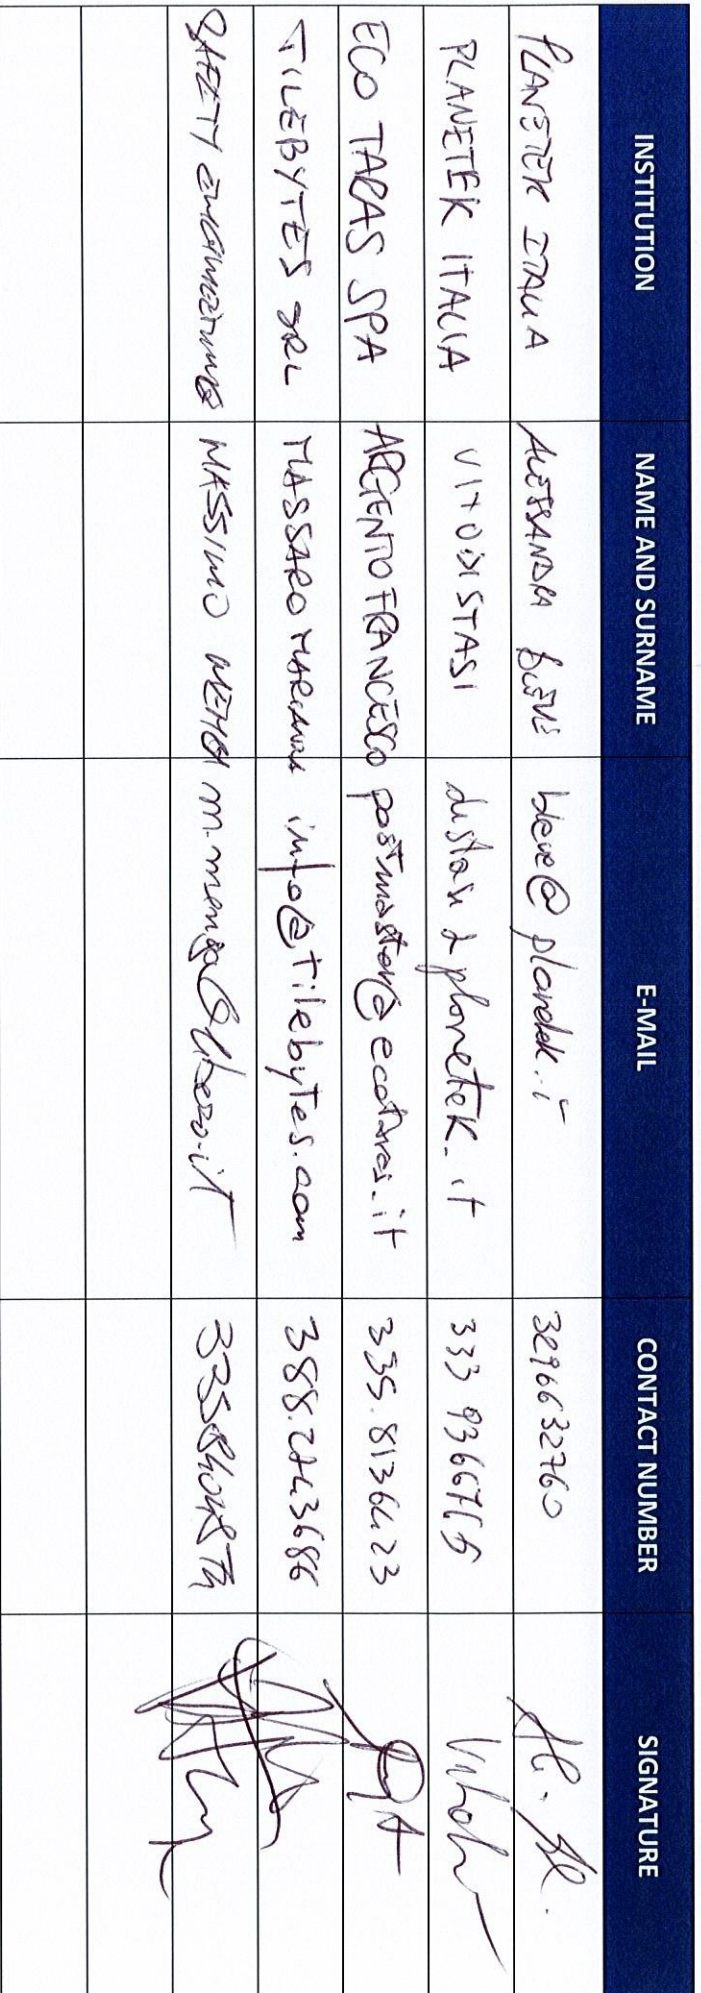 INSTITUTION NAME AND SURNAME E-MAIL CONTACT NUMBER SIGNATURE
PLANETEK ITALIA ALESSANDRA bleve@planetek.it 3296632760
PLANETEK ITALIA VITO DISTASI distasi @ planetek.it 333
ECO TARAS SPA ARGENTO FRANCESCO postmaster@ecotaras.it 335.8136423
TILEBYTES SRL MASSARO info@tilebytes.com
SAFETY ENGINEERING MASSIMO MENGA m.menga@libero.it